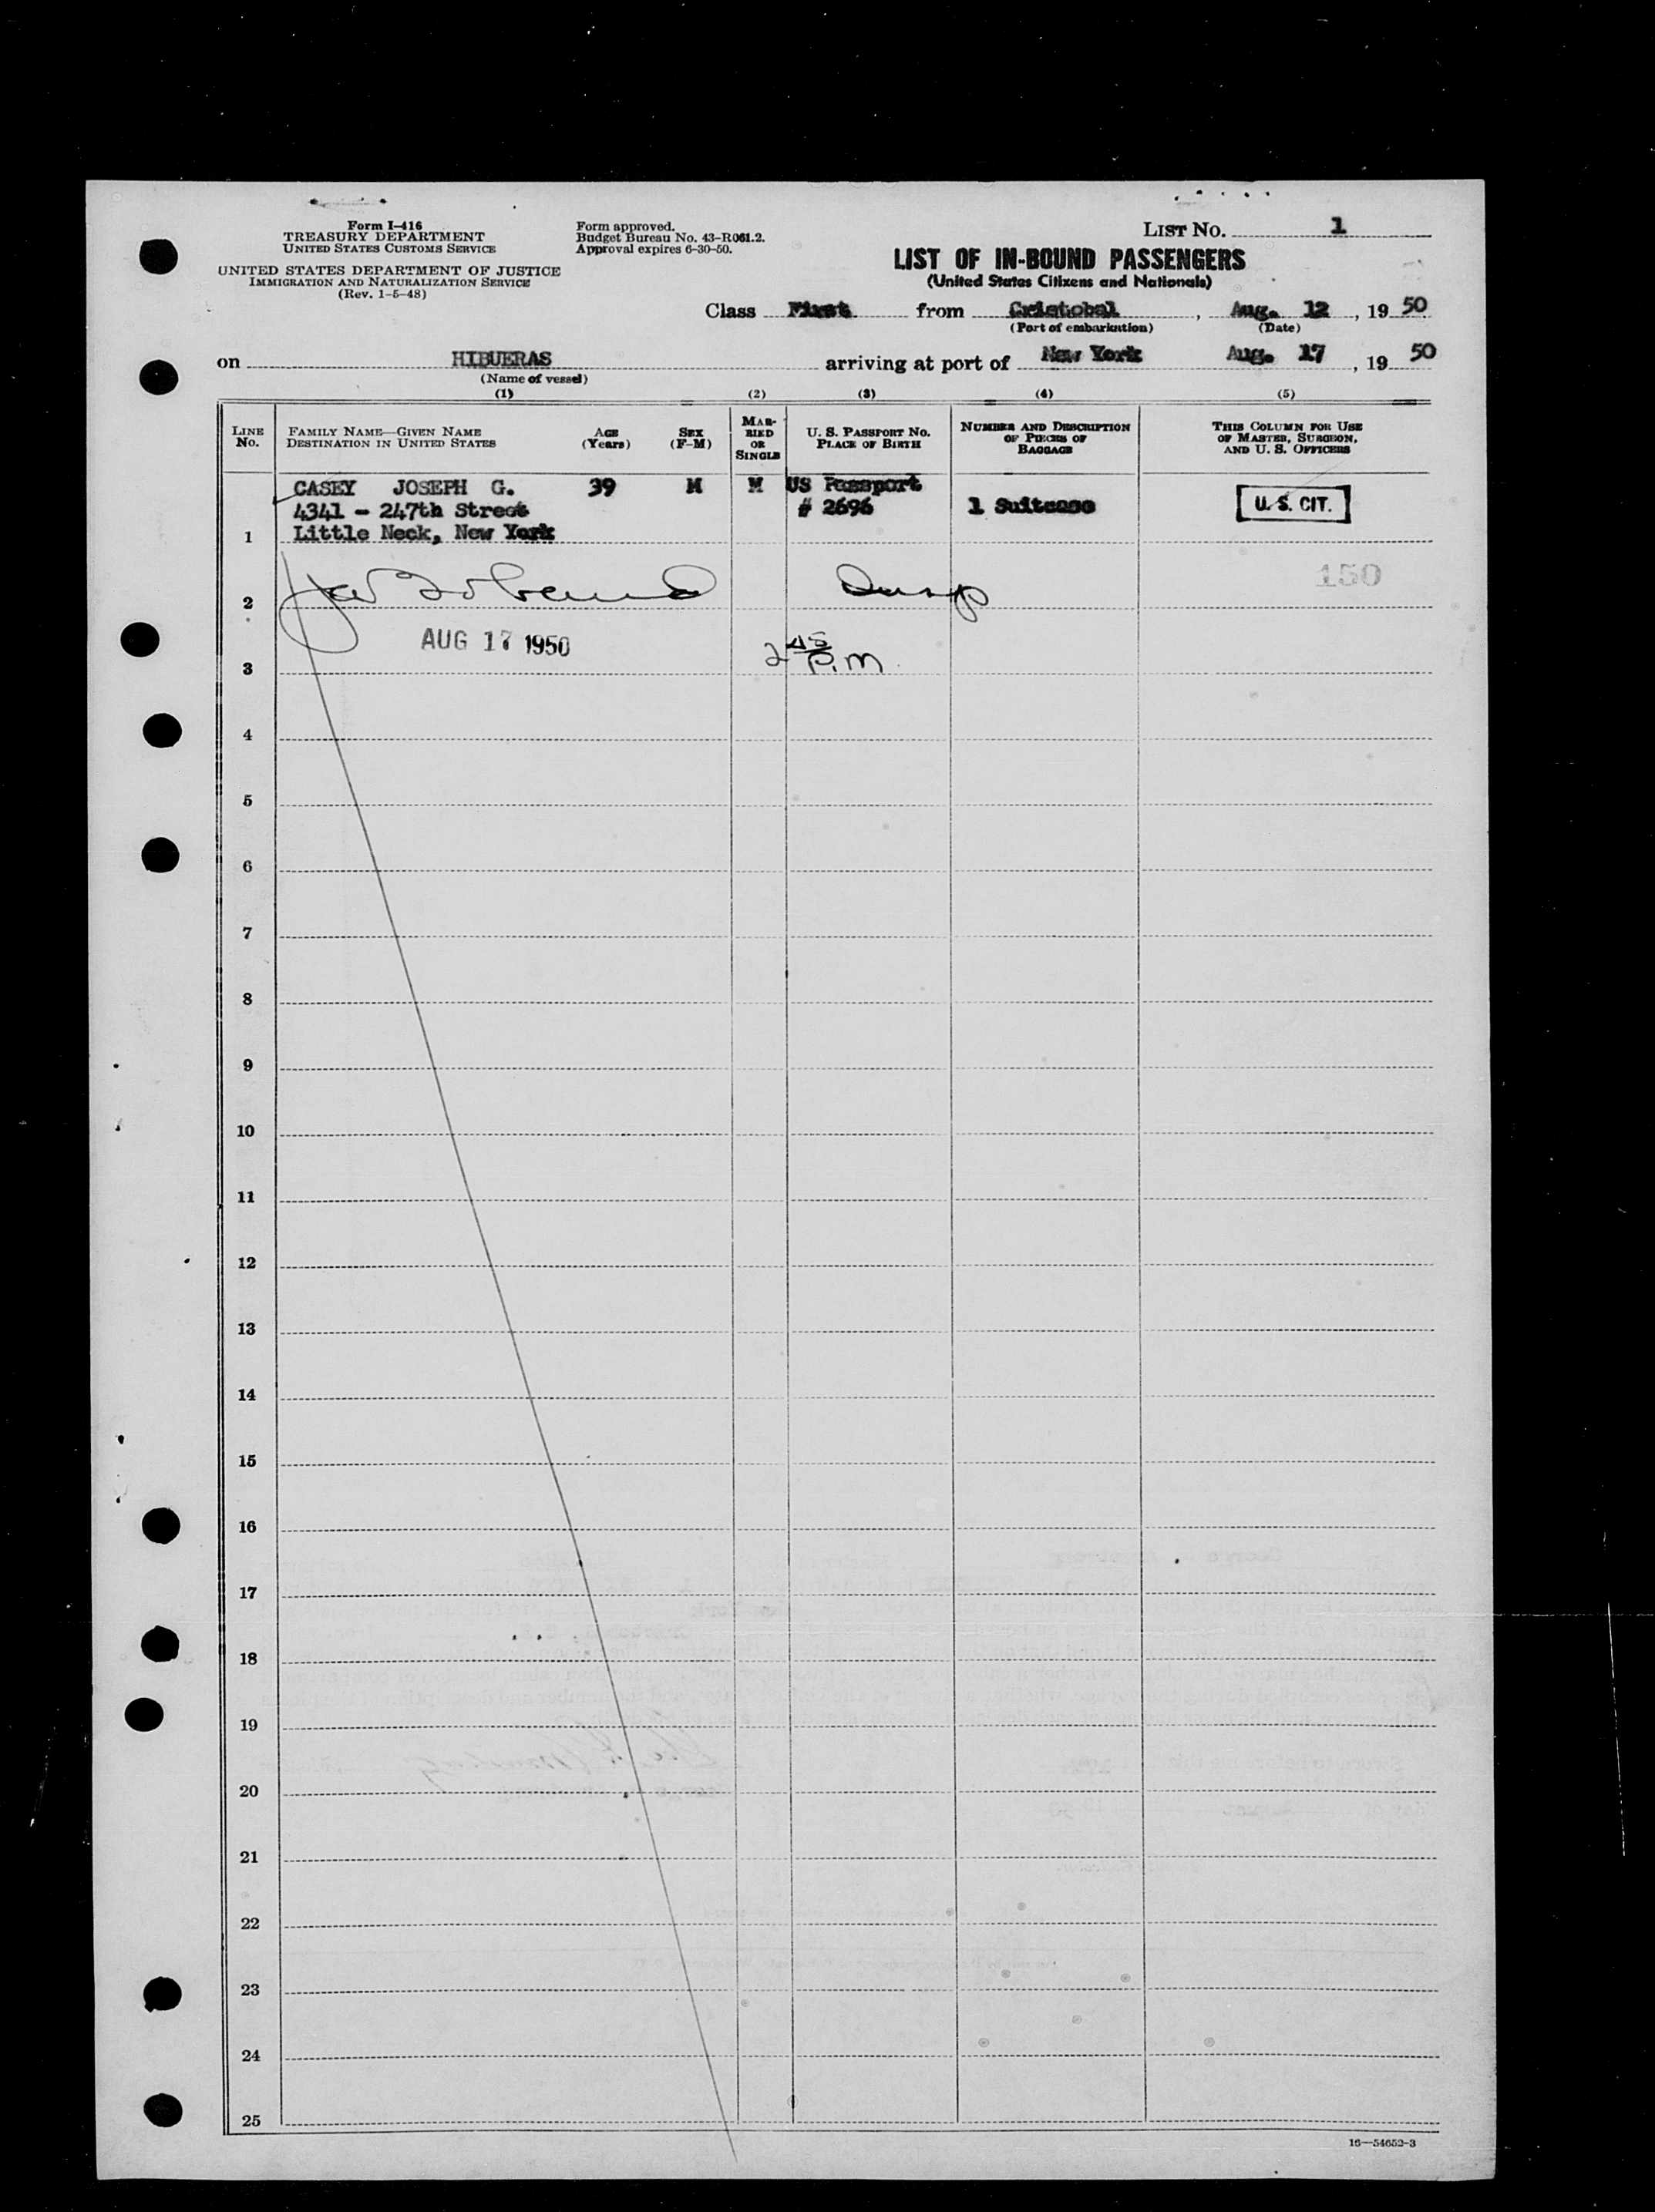 Form I-416
TREASURY DEPARTMENT
UNITED STATES CUSTOMS SERVICE
UNITED STATES DEPARTMENT OF JUSTICE
IMMIGRATION AND NATURALIZATION SERVICE
(Rev. 1-5-48)
Form approved.
Budget Bureau No. 43-R061.2.
Approval expires 6-30-50.
LIST No. 1
LIST OF IN-BOUND PASSENGERS
(United States Citizens and Nationals)
Class First from Cristobal, Aug. 12, 1950
(Port of embarkation) (Date)
on HIBUERAS arriving at port of New York Aug. 17, 1950
(Name of vessel)
(1) (2) (3) (4) (5)
LINE No.
FAMILY NAME—GIVEN NAME
DESTINATION IN UNITED STATES
AGE (Years)
SEX (F-M)
MARRIED OR SINGLE
U. S. PASSPORT No.
PLACE OF BIRTH
NUMBER AND DESCRIPTION OF PIECES OF BAGGAGE
THIS COLUMN FOR USE OF MASTER, SURGEON, AND U. S. OFFICERS
CASEY JOSEPH G. 39 M M US Passport
4341 - 247th Street # 2696 1 Suitcase U.S. CIT.
1 Little Neck, New York
150
2 Insp
AUG 17 1950 2 45 P.M.
3
4
5
6
7
8
9
10
11
12
13
14
15
16
17
18
19
20
21
22
23
24
25
16—54652-3